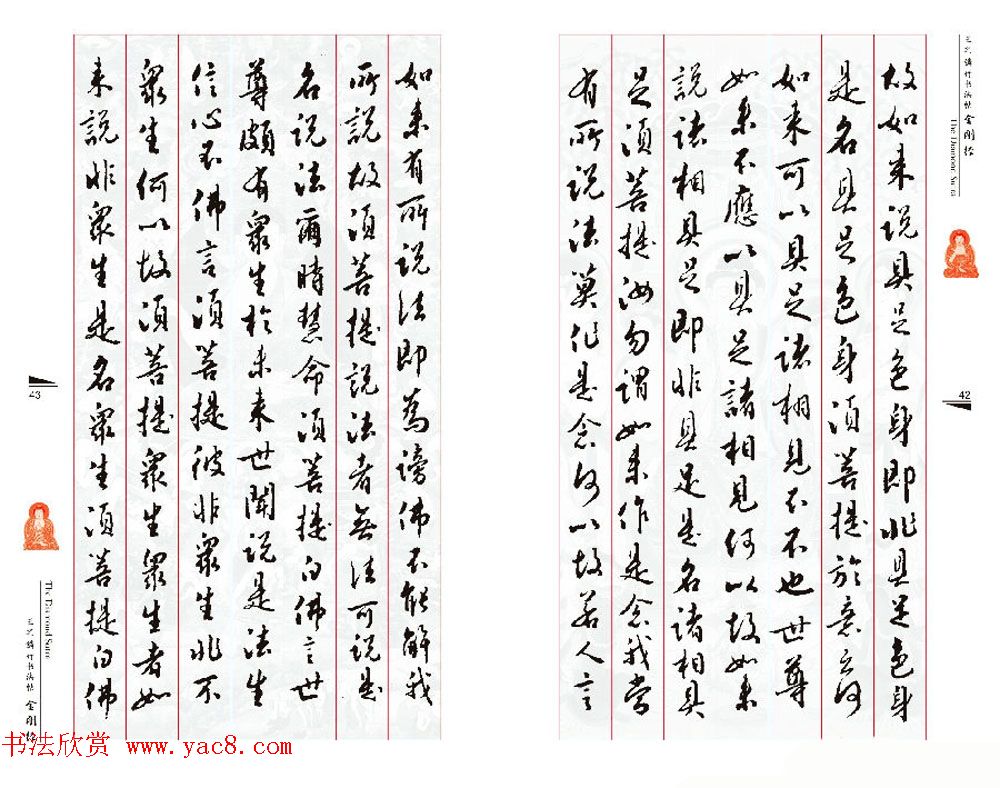 行书法帖 金刚经
The Diamond Sutra
42
故如来说具足色身即非具足色身
是名具足色身須菩提於意云何
如来可以具足诸相見不不也世尊
如来不應以具足諸相見何以故如来
說诸相具足即非具足是名诸相具
足須菩提汝勿謂如来作是念我當
有所说法莫作是念何以故若人言
如来有所说法即為謗佛不能解我
所說故須菩提說法者無法可說是
名说法爾時慧命須菩提白佛言世
尊頗有衆生於未来世聞说是法生
信心不佛言須菩提彼非衆生非不
衆生何以故須菩提衆生衆生者如
来說非衆生是名衆生須菩提白佛
43
The Diamond Sutra
行书法帖 金刚经
书法欣赏 www.yac8.com